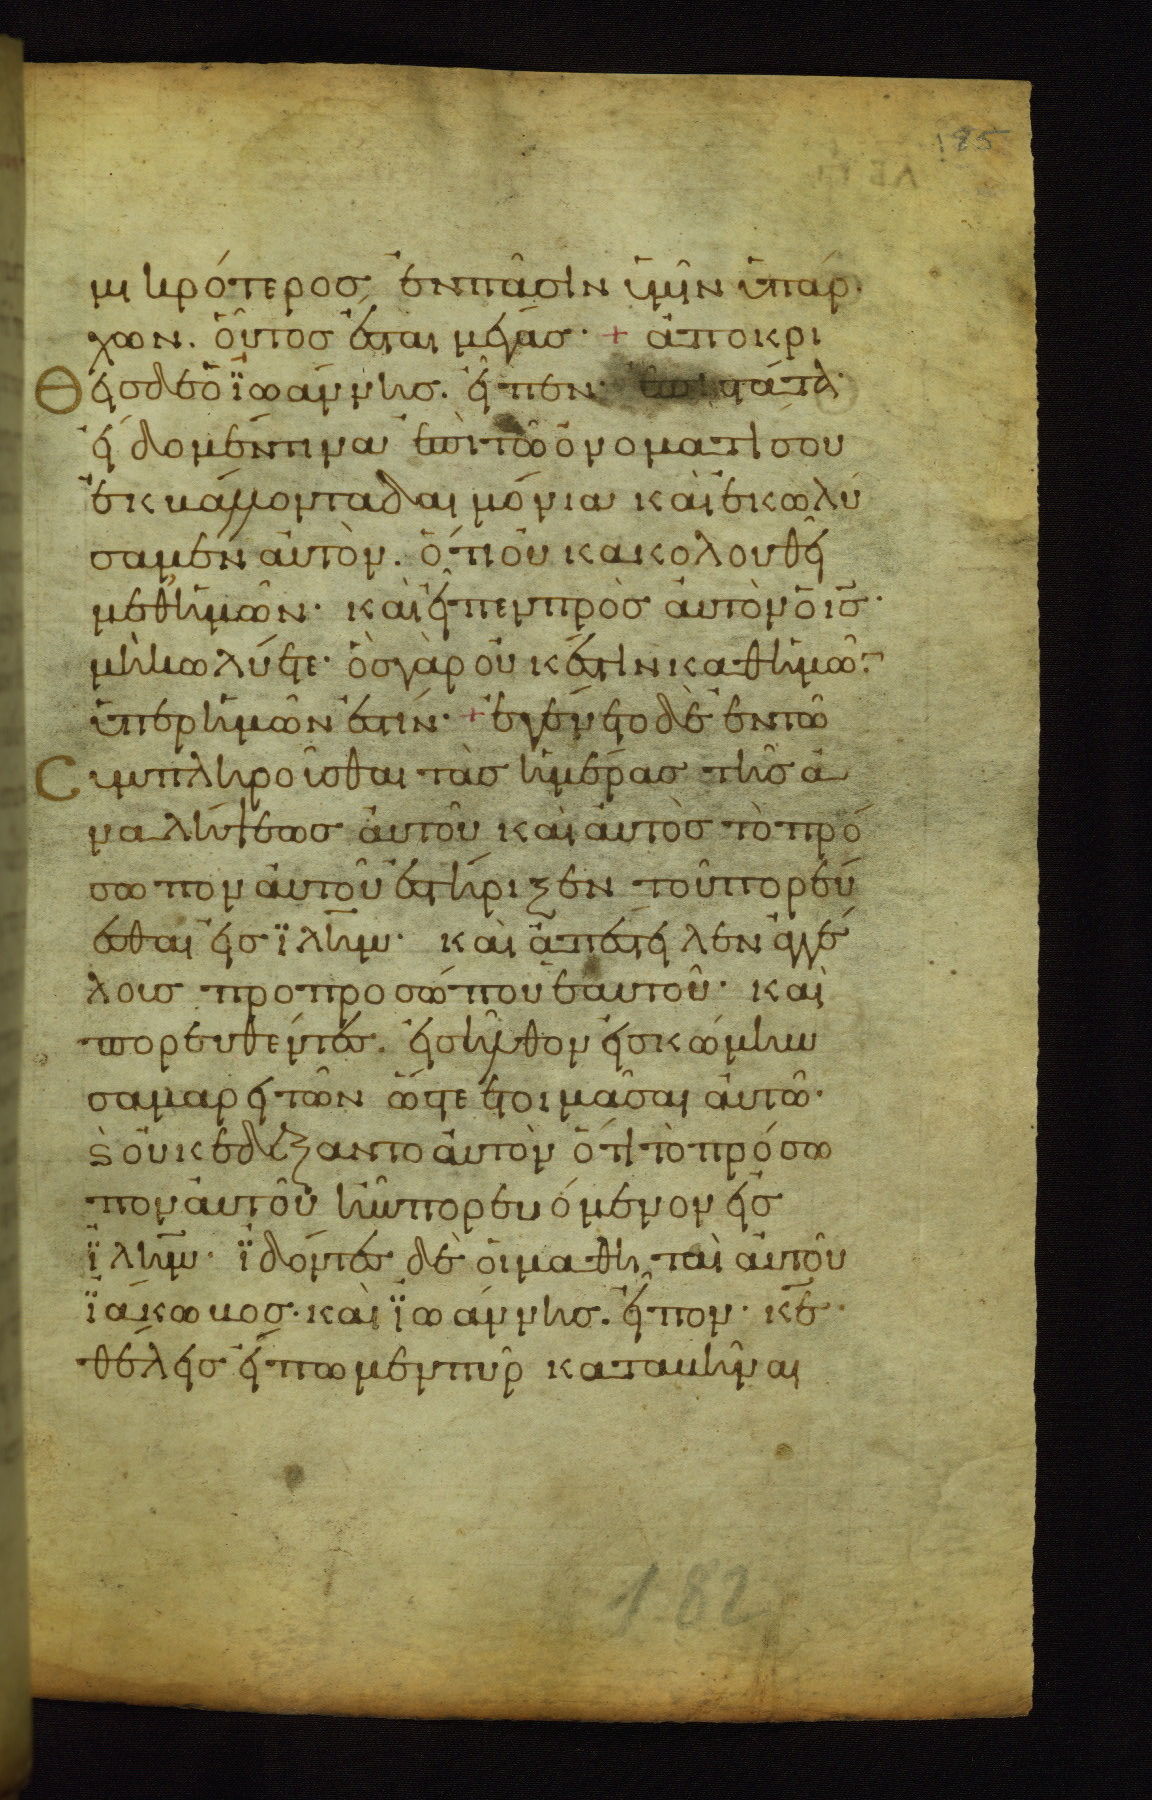 μικρότερος ἐν πᾶσιν ὑμῖν ὑπάρ
χων. οὗτος ἔσται μέγας· + ἀποκρι
Θεὶς δὲ ὁ ϊωάννης. εἶπεν· ἐπιστάτα·
εἴδομέν τινα ἐπὶ τῶ ὀνοματί σου
ἐκβάλλοντα δαιμόνια καὶ ἐκωλύ
σαμεν αὐτὸν. ὅτι οὐκ ακολουθεῖ
μεθ’ ἡμῶν· καὶ εἶπεν πρὸς αὐτὸν ὁ ι̅ς̅·
μὴ κωλύετε· ὃς γὰρ οὐκ ἔστιν καθ ἡμῶ̅·
ὑπερ ἡμῶν ἐστίν· + ἐγένετο δὲ ἐν τῶ
Cυμπληροῦσθαι τὰς ἡμέρας τῆς ἀ
ναλήψεως αὐτοῦ καὶ αὐτὸς τὸ πρό
σωπον αὐτοῦ ἐστήριξεν τοῦ πορεύ
εσθαι εἰς ϊλη̅μ̅· καὶ ἀπέστειλεν ἀγγέ
λους προ προσώπου ἑαυτοῦ· καὶ
πορευθέντες. εἰσῆλθον εἰς κώμην
σαμαρειτῶν ὥστε ἑτοιμᾶσαι αὐτῶ·
ϛ̀ οὐκ εδέξαντο αὐτὸν ὅτι τὸ πρόσω
πον αὐτοῦ ἦν πορευόμενον εἰς
ϊλη̅μ̅· ϊδόντες δὲ οἱ μαθηταὶ αὐτοῦ
ϊάκωβος· καὶ ϊωάννης. εἶπον· κ̅ε̅·
θέλεις εἴπωμεν πῦρ καταβῆναι
185
182